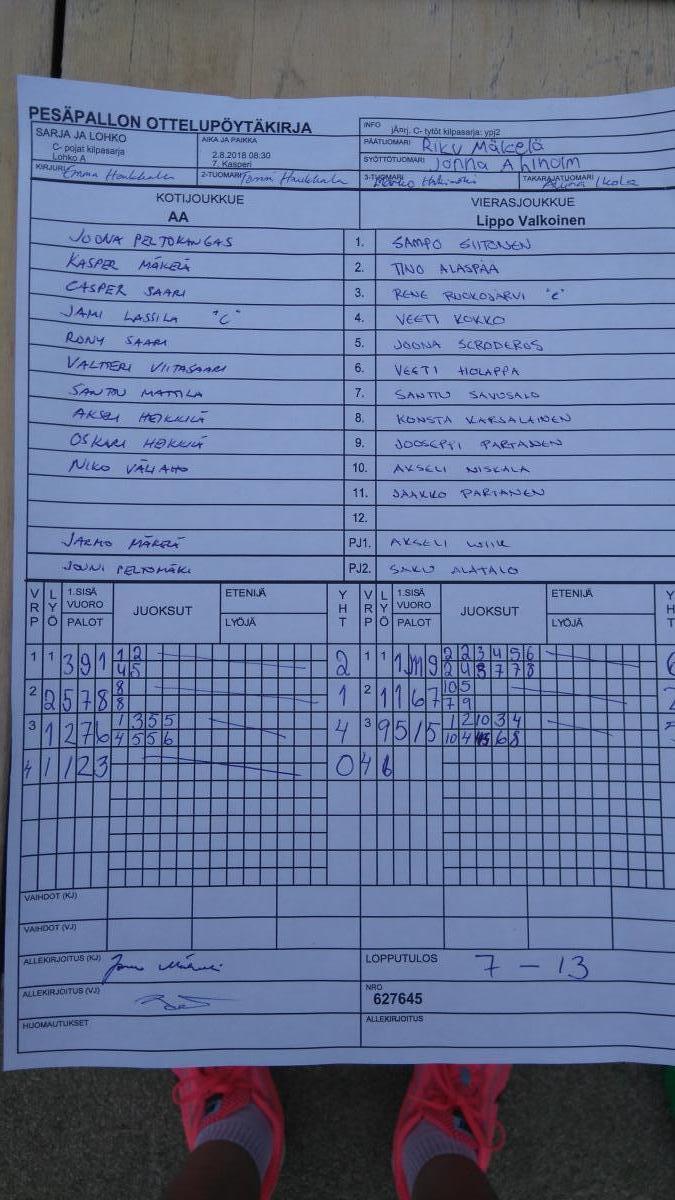 PESÄPALLON OTTELUPÖYTÄKIRJA
INFO jÄorj. C- tytöt kilpasarja: ypj2
SARJA JA LOHKO
C- pojat kilpasarja
Lohko A
AIKA JA PAIKKA
2.8.2018 08:30
7. Kasperi
PÄÄTUOMARI Riku Mäkelä
SYÖTTÖTUOMARI Jonna Ahlholm
KIRJURI Emma Haukkala 2-TUOMARI Tommi Haukkala 3-TUOMARI TAKARAJATUOMARI Ikola
KOTIJOUKKUE
AA
VIERASJOUKKUE
Lippo Valkoinen
JOONA PELTOKANGAS 1. SAMPO SIITONEN
KASPER MÄKELÄ 2. TINO ALASPÄÄ
CASPER SAARI 3. RENE RUOKOJÄRVI "C"
JAMI LASSILA "C" 4. VEETI KOKKO
RONY SAARI 5. JOONA SCRODEROS
VALTTERI VIITASAARI 6. VEETI HOLAPPA
SANTTU MATTILA 7. SANTTU SAVUSALO
AKSELI HEIKKILÄ 8. KONSTA KARSALAINEN
OSKARI HEIKKILÄ 9. JOOSEPPI PARTANEN
NIKO VÄLIAHO 10. AKSELI NISKALA
11. JAAKKO PARTANEN
12.
JARMO MÄKELÄ PJ1. AKSELI WIIK
JOUNI PELTOMÄKI PJ2. SAKU ALATALO
VRP LYÖ 1.SISÄ VUORO PALOT JUOKSUT ETENIJÄ LYÖJÄ YHT VRP LYÖ 1.SISÄ VUORO PALOT JUOKSUT ETENIJÄ LYÖJÄ YHT
1 1 3 9 1 1 2 2 1 1 1 9 2 2 3 4 5 6 6
4 5 2 4 3 7 7 8
2 2 5 7 8 8 1 2 1 1 6 7 10 5
8 7 9
3 1 2 7 6 1 3 5 5 4 3 9 5 1 5 1 2 10 3 4
4 5 5 6 10 4 6 8
4 1 1 2 3 0 4 6
VAIHDOT (KJ)
VAIHDOT (VJ)
ALLEKIRJOITUS (KJ)
LOPPUTULOS 7 - 13
ALLEKIRJOITUS (VJ)
NRO
627645
HUOMAUTUKSET
ALLEKIRJOITUS